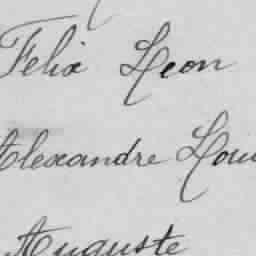 Felix Leon
Alexandre Loui
Auguste